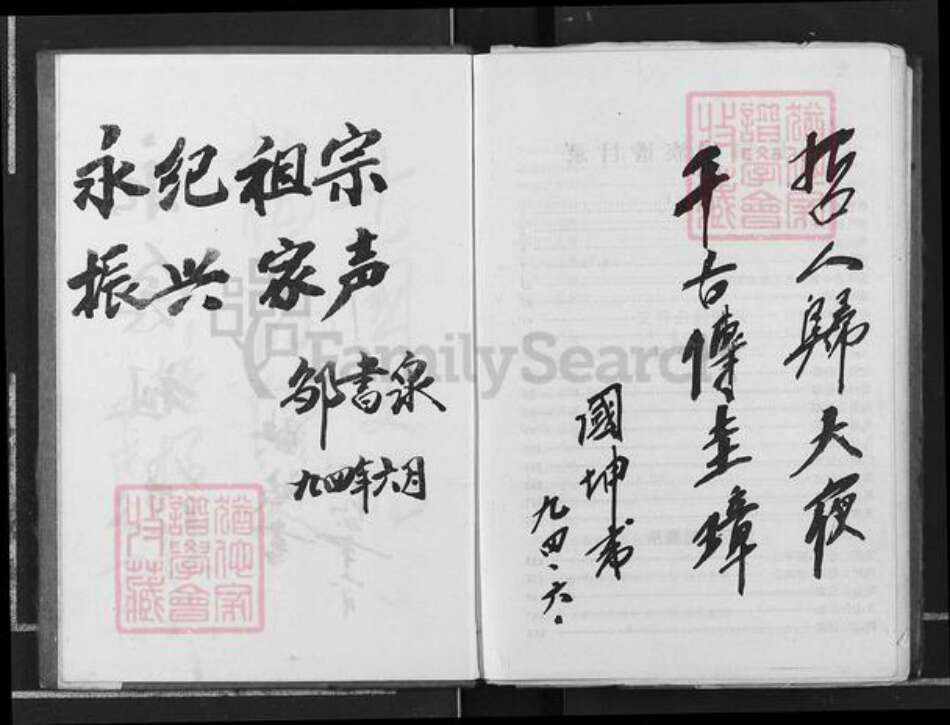 永纪祖宗
振兴家声
邹书泉
九四年六月
哲人歸大夜
千古傳圭璋
國坤書
九四.六.
譜學會
收藏
FamilySearch